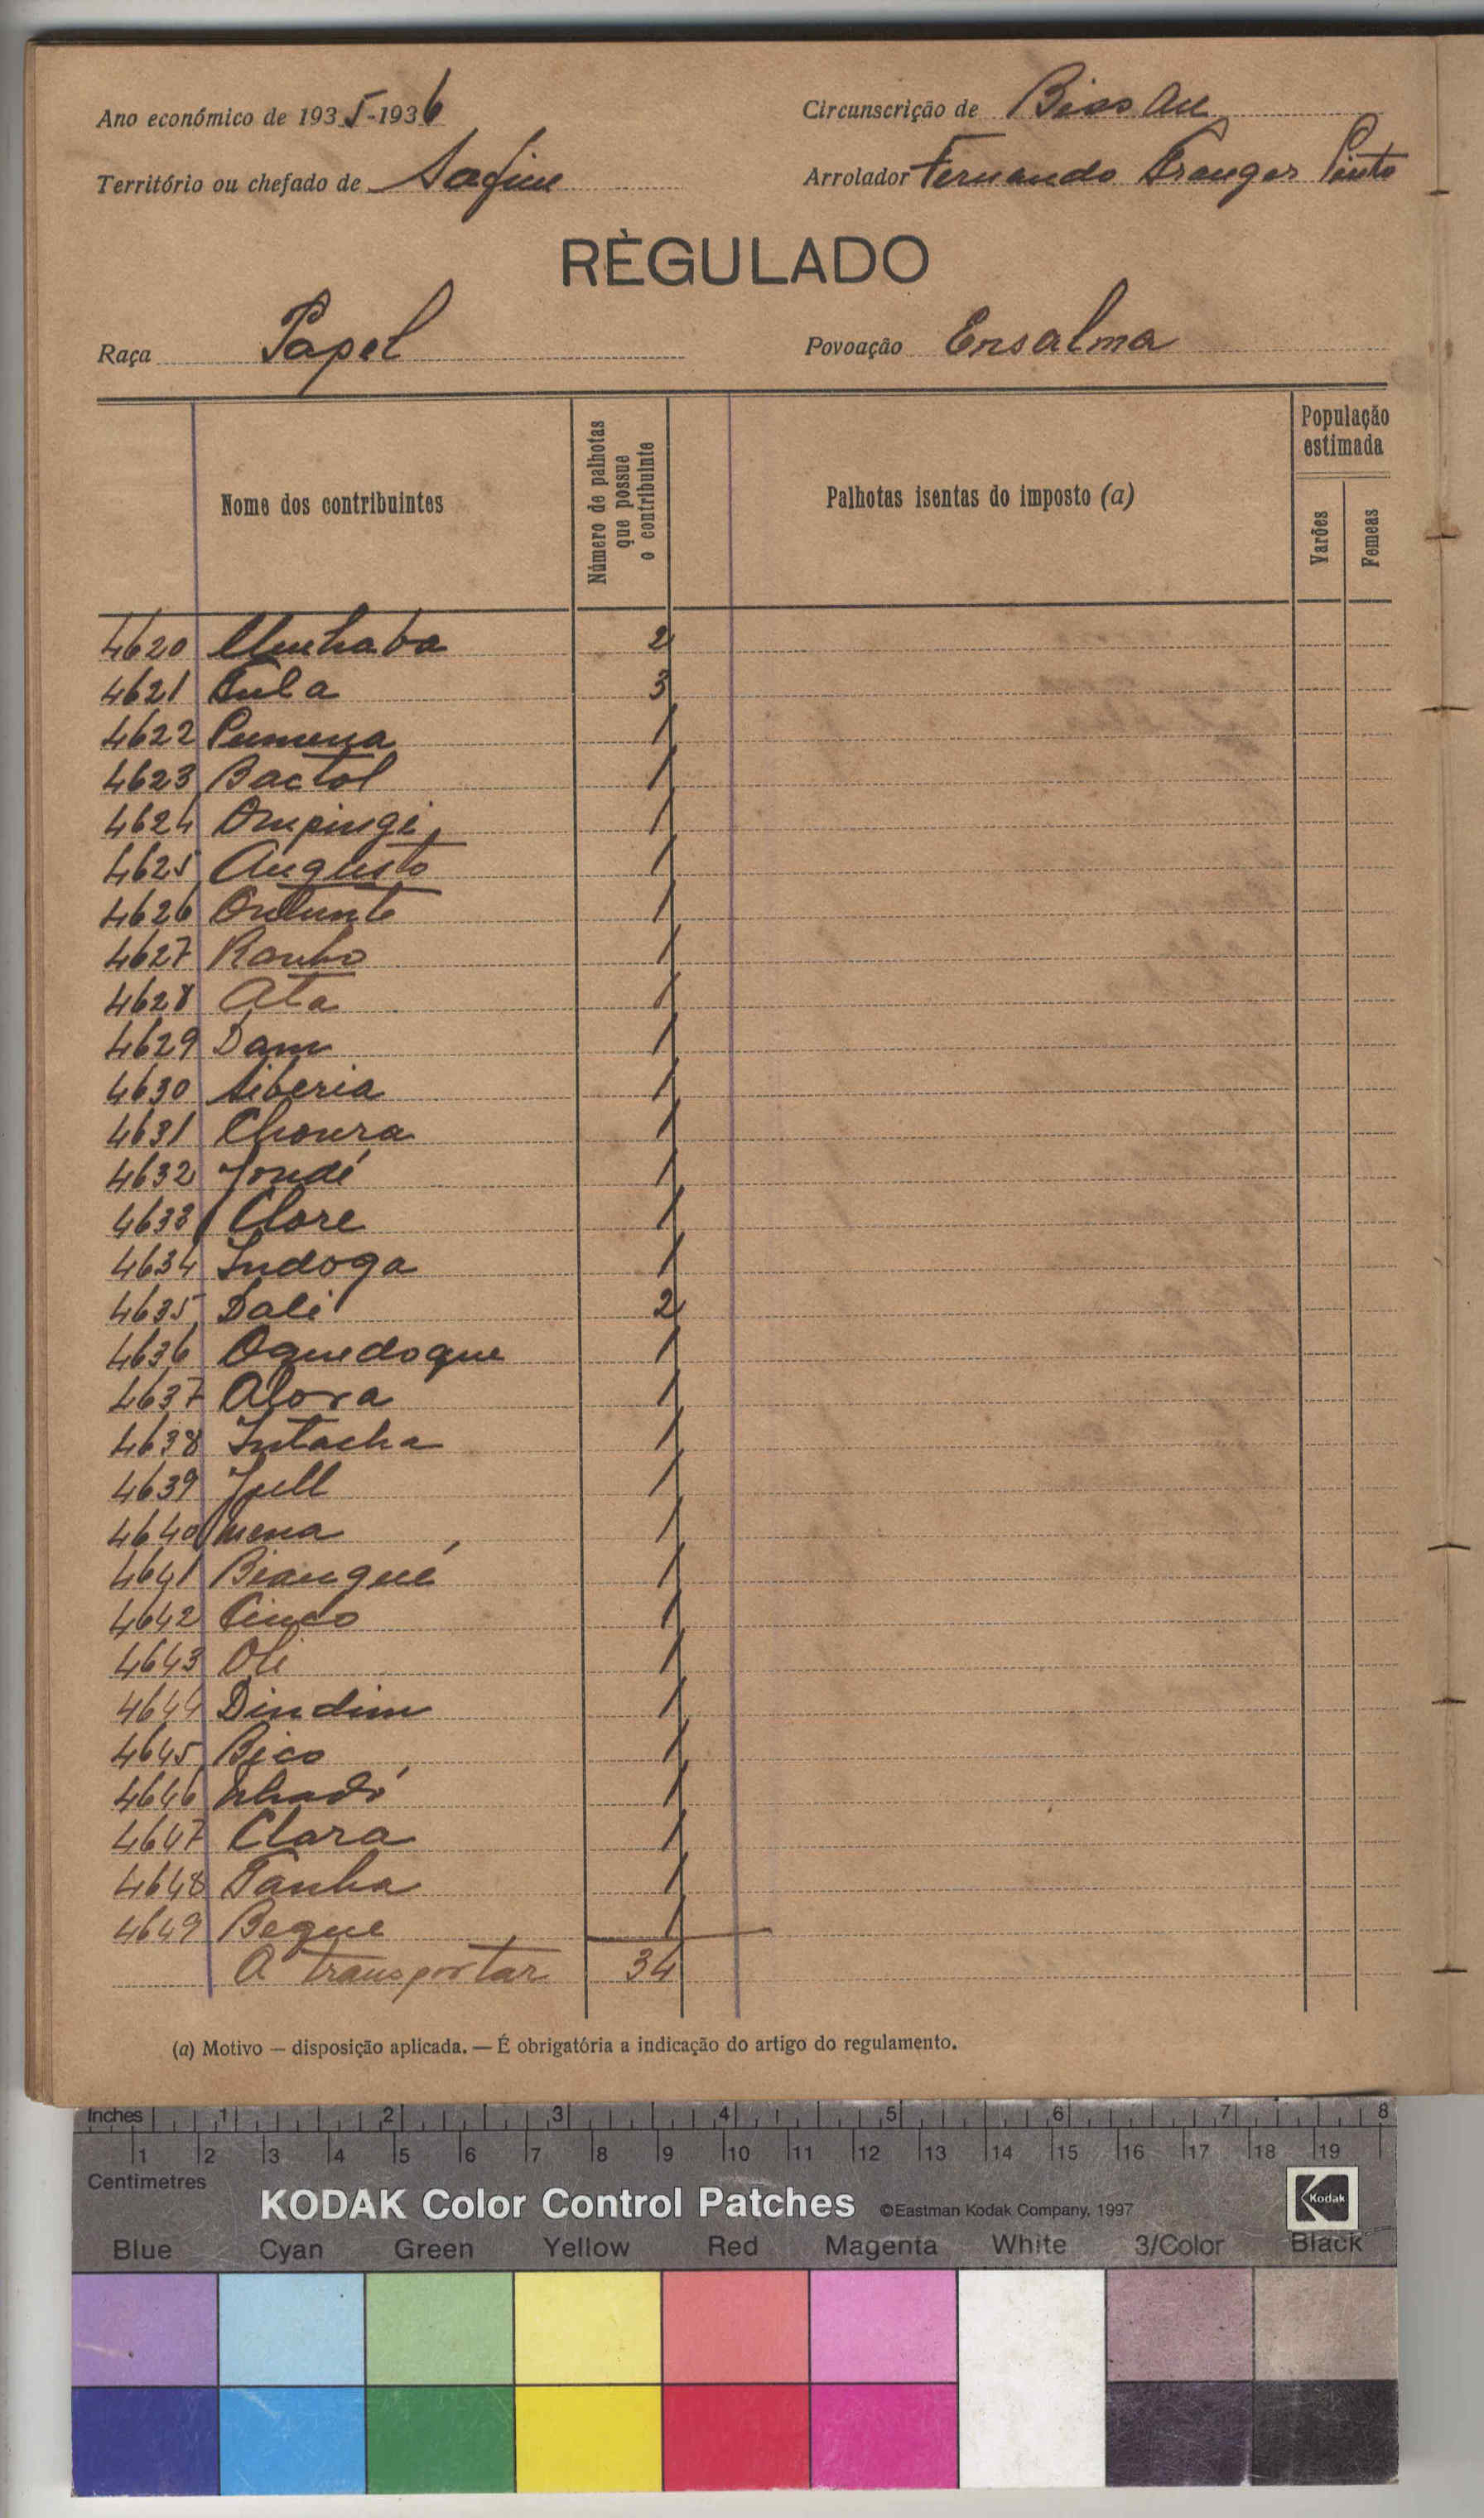 Ano económico de 1935-1936
Circunscrição de Bissau
Território ou chefado de Safim
Arrolador Fernando Pinto
RÈGULADO
Raça Papel
Povoação Ensalma
Nome dos contribuintes
Número de palhotas que possue o contribuinte
Palhotas isentas do imposto (a)
População estimada
Varões
Femeas
4620 2
4621 Tula 3
4622 Pumena 1
4623 Bactol 1
4624 Ompinge 1
4625 Augusto 1
4626 1
4627 Ranho 1
4628 Ata 1
4629 Dam 1
4630 Siberia 1
4631 Choura 1
4632 1
4633 Clore 1
4634 Indoga 1
4635 Dali 2
4636 Oquedoque 1
4637 Alora 1
4638 Intacha 1
4639 1
4640 1
4641 Biangué 1
4642 Cinco 1
4643 Oli 1
4644 Dindim 1
4645 Bico 1
4646 1
4647 Clara 1
4648 Tanha 1
4649 Beque 1
A transportar 34
(a) Motivo — disposição aplicada. — É obrigatória a indicação do artigo do regulamento.
Inches 1 2 3 4 5 6 7 8
1 2 3 4 5 6 7 8 9 10 11 12 13 14 15 16 17 18 19
Centimetres
KODAK Color Control Patches ©Eastman Kodak Company, 1997 Kodak
Blue Cyan Green Yellow Red Magenta White 3/Color Black